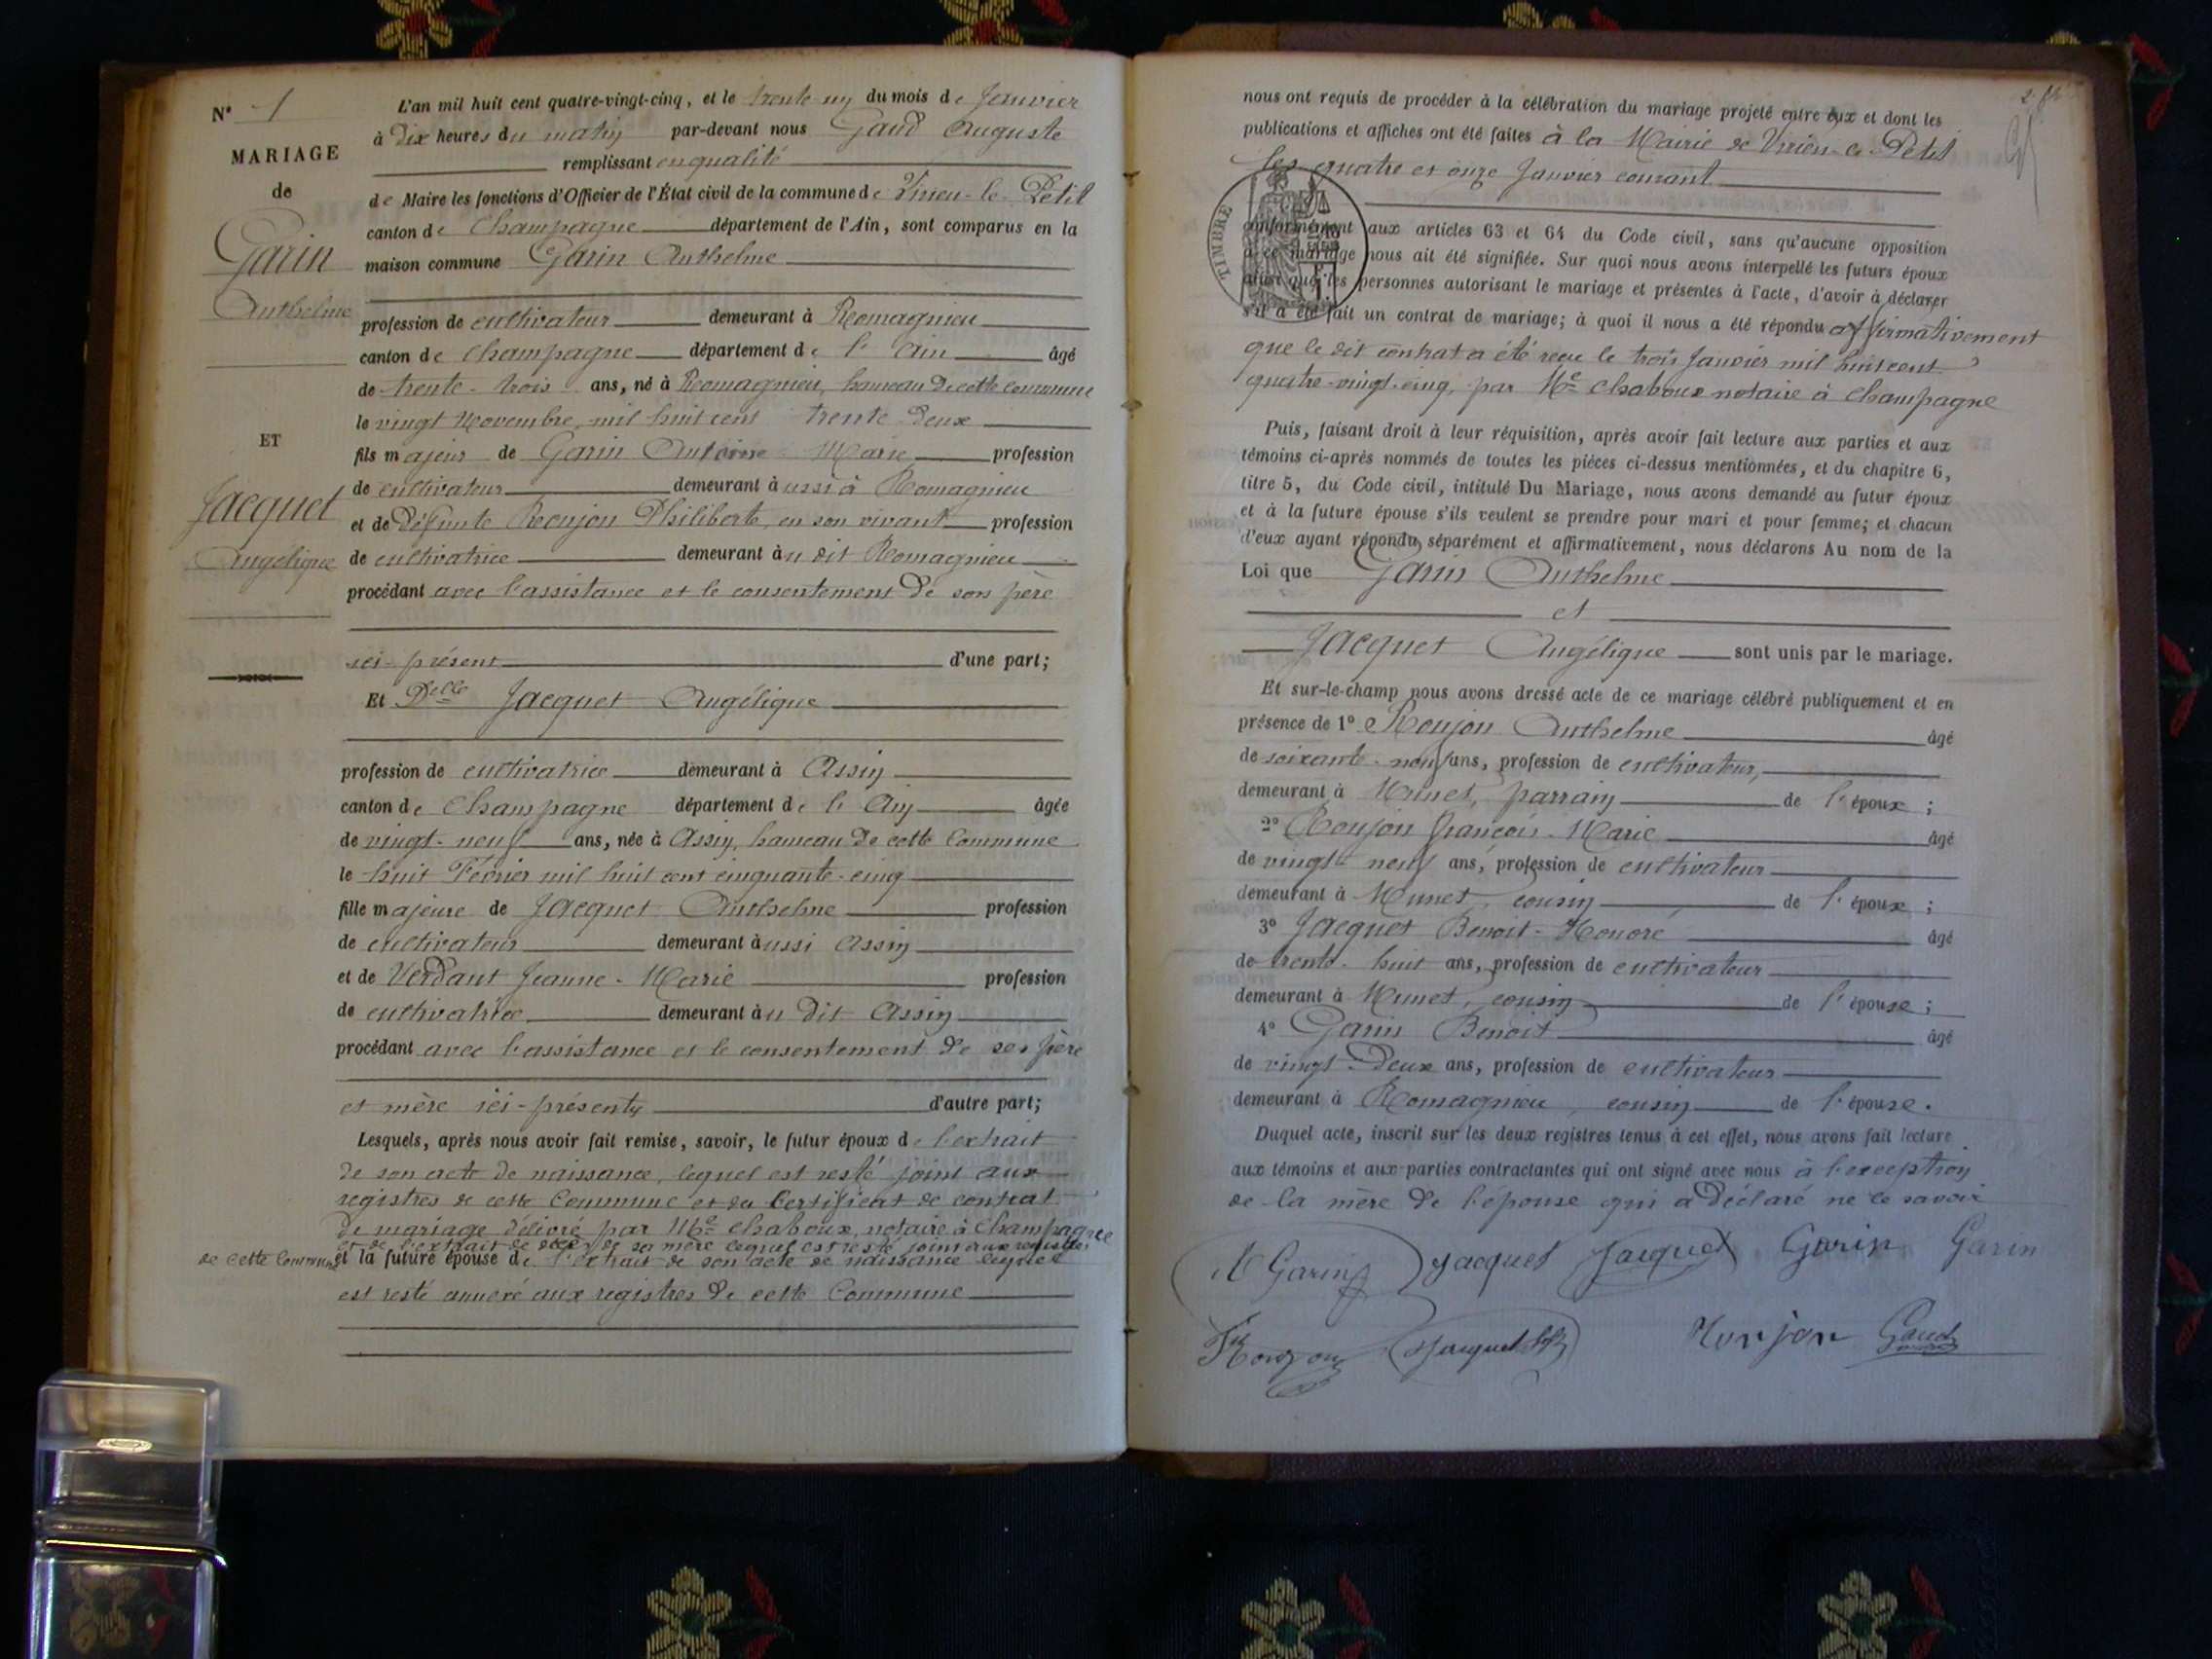 N° 1
MARIAGE
de
Garin
Anthelme
ET
Jacquet
Angélique
L'an mil huit cent quatre-vingt-cinq, et le trente un du mois de Janvier
à dix heures du matin par-devant nous Gaud Auguste
remplissant en qualité
de Maire les fonctions d'Officier de l'État civil de la commune de Virieu-le-Petit
canton de Champagne département de l'Ain, sont comparus en la
maison commune Garin Anthelme
profession de cultivateur demeurant à Romagnieu
canton de Champagne département de l'Ain âgé
de trente-trois ans, né à Romagnieu, hameau de cette commune
le vingt Novembre mil huit cent trente deux
fils majeur de Garin Antoine Marie profession
de cultivateur demeurant aussi à Romagnieu
et de défunte Roujon Philiberte, en son vivant profession
de cultivatrice demeurant au dit Romagnieu
procédant avec l'assistance et le consentement de son père
ici-présent d'une part;
Et Delle Jacquet Angélique
profession de cultivatrice demeurant à Assin
canton de Champagne département de l'Ain âgée
de vingt-neuf ans, née à Assin, hameau de cette Commune
le huit Février mil huit cent cinquante-cinq
fille majeure de Jacquet Anthelme profession
de cultivateur demeurant aussi Assin
et de Verdant Jeanne-Marie profession
de cultivatrice demeurant au dit Assin
procédant avec l'assistance et le consentement de ses père
et mère ici-présents d'autre part;
Lesquels, après nous avoir fait remise, savoir, le futur époux de l'extrait
de son acte de naissance, lequel est resté joint aux
registres de cette Commune et du Certificat de contrat
de mariage délivré par Me Chaboux, notaire à Champagne
et de l'extrait de décès de sa mère lequel est resté joint aux registres
de cette Commune et la future épouse de l'extrait de son acte de naissance lequel
est resté annexé aux registres de cette Commune
nous ont requis de procéder à la célébration du mariage projeté entre eux et dont les
publications et affiches ont été faites à la Mairie de Virieu-le-Petit
les quatre et onze Janvier courant
TIMBRE
conformément aux articles 63 et 64 du Code civil, sans qu'aucune opposition
à ce mariage nous ait été signifiée. Sur quoi nous avons interpellé les futurs époux
ainsi que les personnes autorisant le mariage et présentes à l'acte, d'avoir à déclarer
s'il a été fait un contrat de mariage; à quoi il nous a été répondu affirmativement
que le dit contrat a été reçu le trois Janvier mil huit cent
quatre-vingt-cinq, par Me Chaboux notaire à Champagne
Puis, faisant droit à leur réquisition, après avoir fait lecture aux parties et aux
témoins ci-après nommés de toutes les pièces ci-dessus mentionnées, et du chapitre 6,
titre 5, du Code civil, intitulé Du Mariage, nous avons demandé au futur époux
et à la future épouse s'ils veulent se prendre pour mari et pour femme; et chacun
d'eux ayant répondu séparément et affirmativement, nous déclarons Au nom de la
Loi que Garin Anthelme
et
Jacquet Angélique sont unis par le mariage.
Et sur-le-champ nous avons dressé acte de ce mariage célébré publiquement et en
présence de 1° Roujon Anthelme âgé
de soixante-neuf ans, profession de cultivateur,
demeurant à Munet, parrain de l'époux;
2° Roujon François-Marie âgé
de vingt-neuf ans, profession de cultivateur
demeurant à Munet, cousin de l'époux;
3° Jacquet Benoit-Honoré âgé
de trente-huit ans, profession de cultivateur
demeurant à Munet, cousin de l'épouse;
4° Garin Benoit âgé
de vingt-deux ans, profession de cultivateur
demeurant à Romagnieu, cousin de l'épouse.
Duquel acte, inscrit sur les deux registres tenus à cet effet, nous avons fait lecture
aux témoins et aux parties contractantes qui ont signé avec nous à l'exception
de la mère de l'épouse qui a déclaré ne le savoir
A Garin Jacquet Jacquet Garin Garin
Roujon Jacquet Roujon Gaud